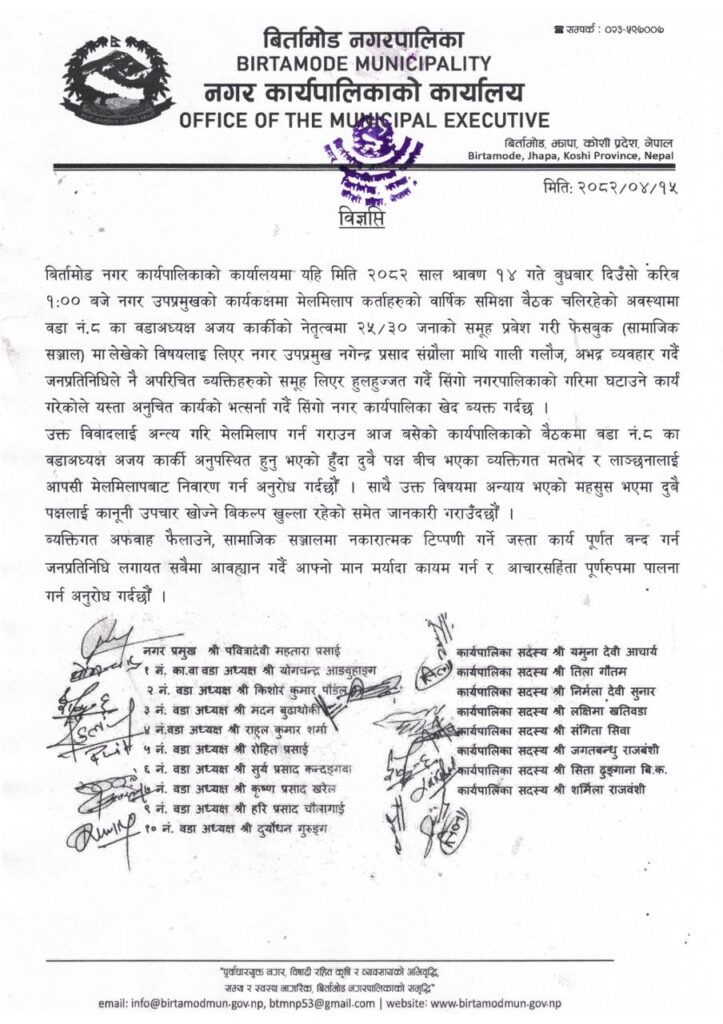 ☎ सम्पर्क : ०२३-५९७००७
बिर्तामोड नगरपालिका
BIRTAMODE MUNICIPALITY
नगर कार्यपालिकाको कार्यालय
OFFICE OF THE MUNICIPAL EXECUTIVE
बिर्तामोड, झापा, कोशी प्रदेश, नेपाल
Birtamode, Jhapa, Koshi Province, Nepal
मिति: २०८२/०४/१५
विज्ञप्ति
बिर्तामोड नगर कार्यपालिकाको कार्यालयमा यहि मिति २०८२ साल श्रावण १४ गते बुधबार दिउँसो करिब
१:०० बजे नगर उपप्रमुखको कार्यकक्षमा मेलमिलाप कर्ताहरुको वार्षिक समिक्षा बैठक चलिरहेको अवस्थामा
वडा नं.८ का वडाअध्यक्ष अजय कार्कीको नेतृत्वमा २५/३० जनाको समूह प्रबेश गरी फेसबुक (सामाजिक
सञ्जाल) मा लेखेको विषयलाइ लिएर नगर उपप्रमुख नगेन्द्र प्रसाद संग्रौला माथि गाली गलौज, अभद्र व्यवहार गर्दै
जनप्रतिनिधिले नै अपरिचित ब्यक्तिहरुको समूह लिएर हुलहुज्जत गर्दै सिंगो नगरपालिकाको गरिमा घटाउने कार्य
गरेकोले यस्ता अनुचित कार्यको भत्सर्ना गर्दै सिंगो नगर कार्यपालिका खेद ब्यक्त गर्दछ ।
उक्त विवादलाई अन्त्य गरि मेलमिलाप गर्न गराउन आज बसेको कार्यपालिकाको बैठकमा वडा नं.८ का
वडाअध्यक्ष अजय कार्की अनुपस्थित हुनु भएको हुँदा दुबै पक्ष बीच भएका ब्यक्तिगत मतभेद र लाञ्छनालाई
आपसी मेलमिलापबाट निवारण गर्न अनुरोध गर्दछौं । साथै उक्त विषयमा अन्याय भएको महसुस भएमा दुबै
पक्षलाई कानूनी उपचार खोज्ने बिकल्प खुल्ला रहेको समेत जानकारी गराउँदछौं ।
ब्यक्तिगत अफवाह फैलाउने, सामाजिक सञ्जालमा नकारात्मक टिप्पणी गर्ने जस्ता कार्य पूर्णत बन्द गर्न
जनप्रतिनिधि लगायत सबैमा आवह्यान गर्दै आफ्नो मान मर्यादा कायम गर्न र आचारसंहिता पूर्णरुपमा पालना
गर्न अनुरोध गर्दछौं ।
नगर प्रमुख श्री पवित्रादेवी महतारा प्रसाई
१ नं. का.वा वडा अध्यक्ष श्री योगचन्द्र आङबुहाङ्ग
२ नं. वडा अध्यक्ष श्री किशोर कुमार पौडेल
३ नं. वडा अध्यक्ष श्री मदन बुढाथोकी
४ नं.वडा अध्यक्ष श्री राहुल कुमार शर्मा
५ नं. वडा अध्यक्ष श्री रोहित प्रसाई
६ नं. वडा अध्यक्ष श्री सुर्य प्रसाद कन्दङ्गवा
७ नं. वडा अध्यक्ष श्री कृष्ण प्रसाद खरेल
९ नं. वडा अध्यक्ष श्री हरि प्रसाद चौलागाई
१० नं. वडा अध्यक्ष श्री दुर्योधन गुरुङ्ग
कार्यपालिका सदस्य श्री यमुना देवी आचार्य
कार्यपालिका सदस्य श्री तिला गौतम
कार्यपालिका सदस्य श्री निर्मला देवी सुनार
कार्यपालिका सदस्य श्री लक्षिमा खतिवडा
कार्यपालिका सदस्य श्री संगिता सिवा
कार्यपालिका सदस्य श्री जगतबन्धु राजबंशी
कार्यपालिका सदस्य श्री सिता ढुङ्गाना बि.क.
कार्यपालिका सदस्य श्री शर्मिला राजवंशी
"पूर्वाधारयुक्त नगर, विषादी रहित कृषि र व्यवसायको अभिवृद्धि,
सभ्य र स्वस्थ नागरिक, बिर्तामोड नगरपालिकाको समृद्धि"
email: info@birtamodmun.gov.np, btmnp53@gmail.com | website: www.birtamodmun.gov.np